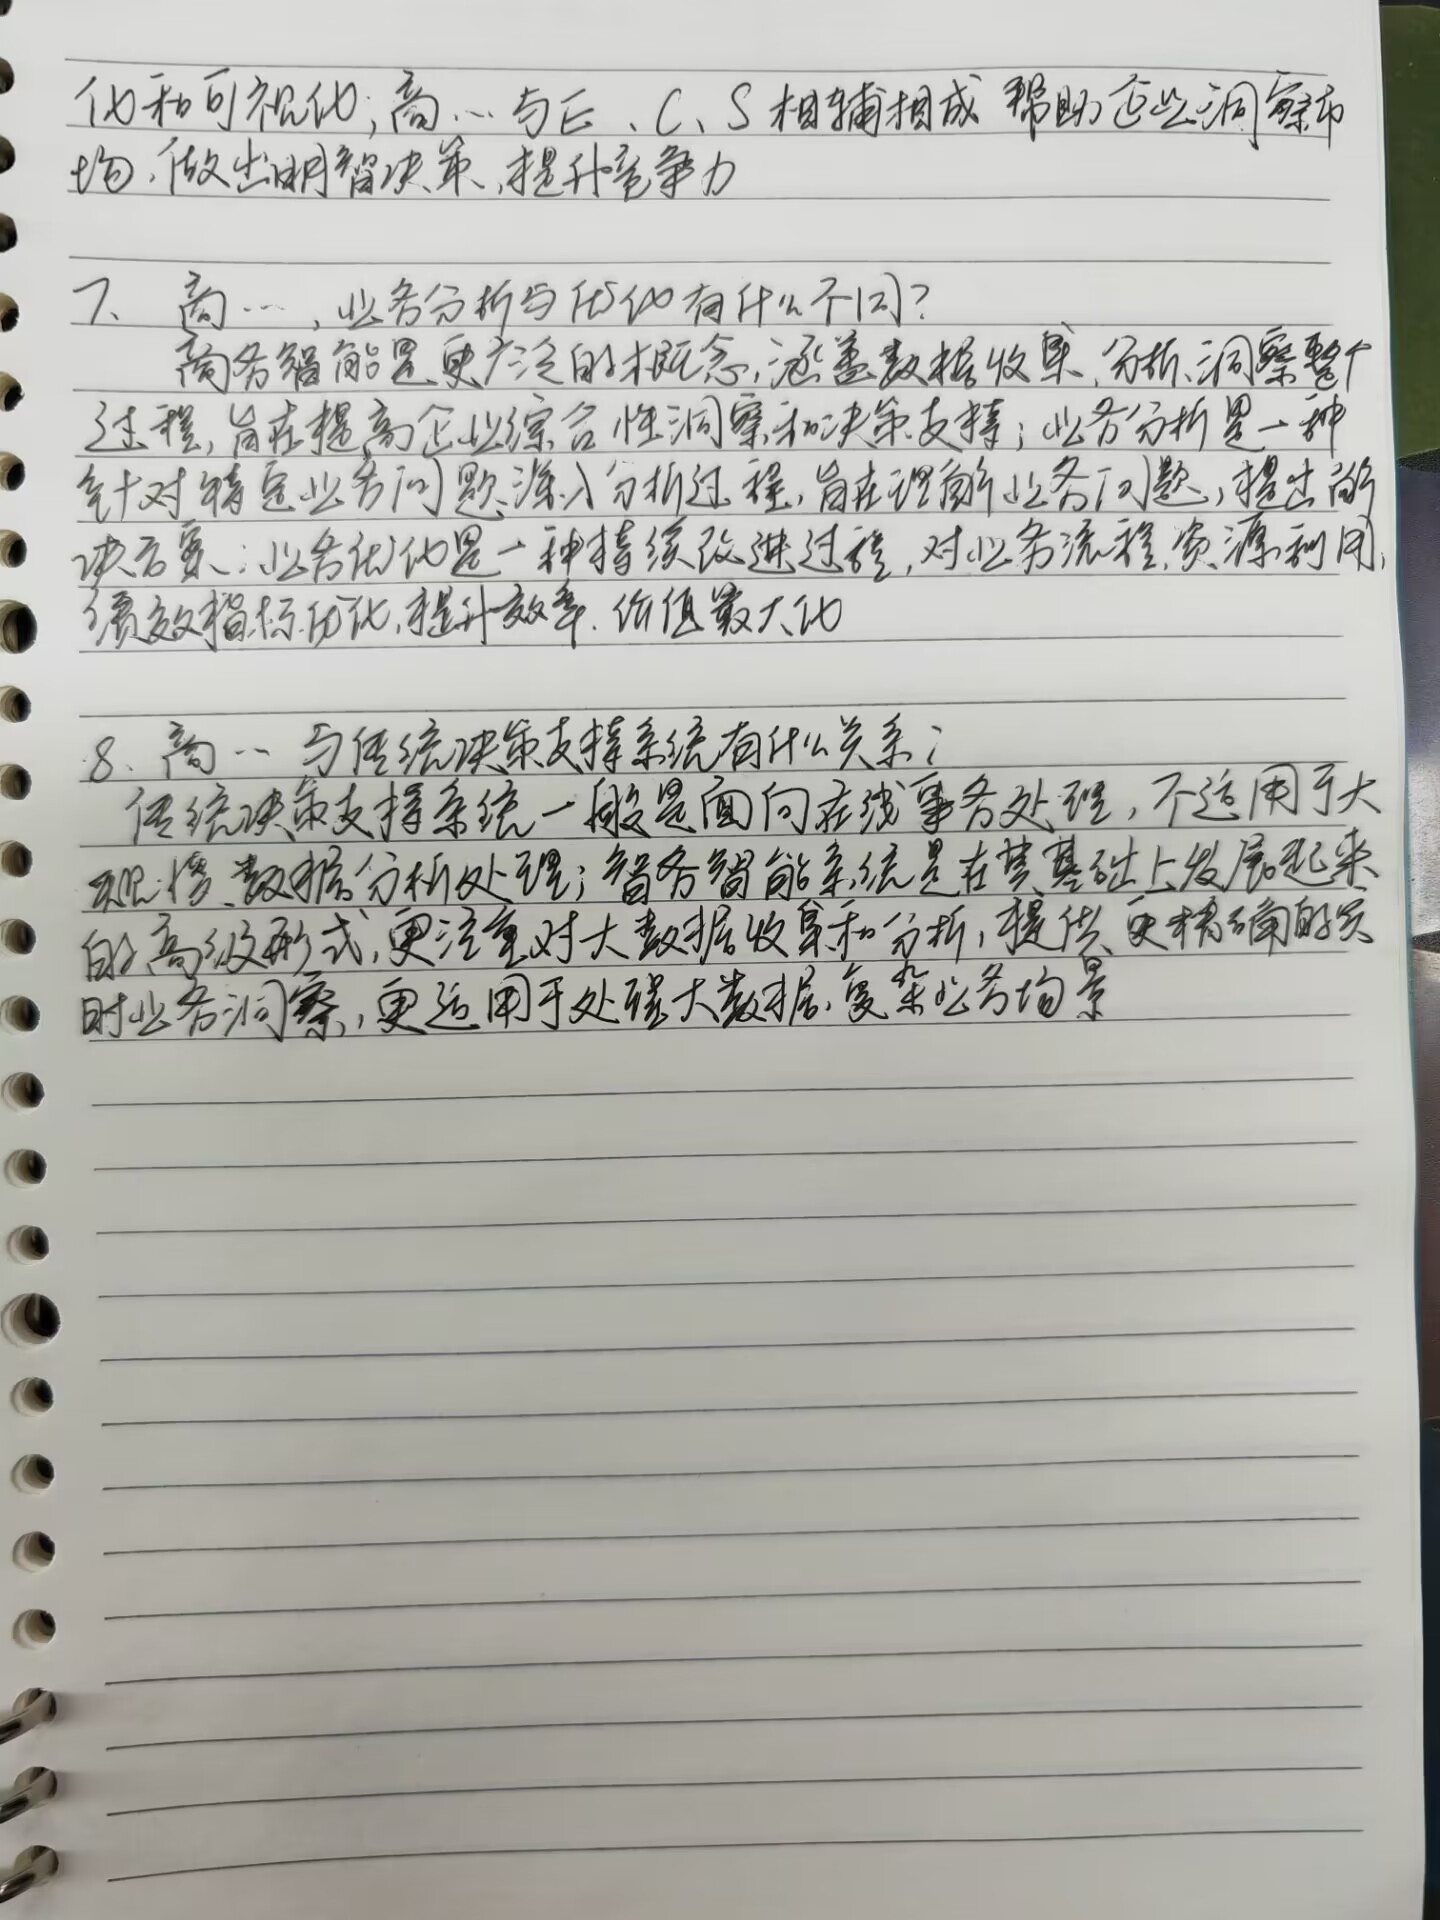 化和可视化;商…与E、C、S相辅相成 帮助企业洞察市
场、做出明智决策,提升竞争力
7、商…,业务分析与优化有什么不同?
商务智能是更广泛的概念,涵盖数据收集、分析、洞察整个
过程,旨在提高企业综合性洞察和决策支持;业务分析是一种
针对特定业务问题深入分析过程,旨在理解业务问题,提出解
决方案;业务优化是一种持续改进过程,对业务流程,资源利用,
绩效指标优化,提升效率、价值最大化
8、商…与传统决策支持系统有什么关系;
传统决策支持系统一般是面向在线事务处理,不适用于大
规模数据分析处理;智务智能系统是在其基础上发展起来
的高级形式,更注重对大数据收集和分析,提供更精确的实
时业务洞察,更适用于处理大数据、复杂业务场景